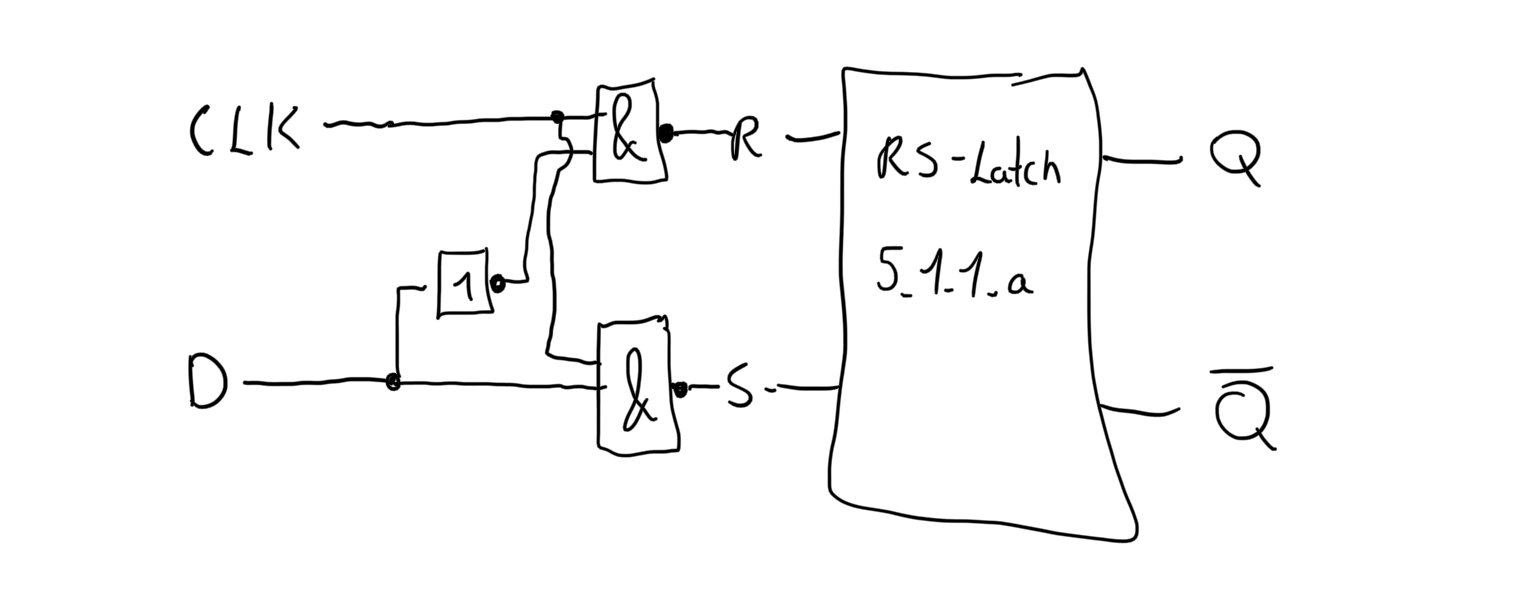 CLK
&
R
RS-Latch
Q
5.1.1.a
1
D
&
S
Q̅